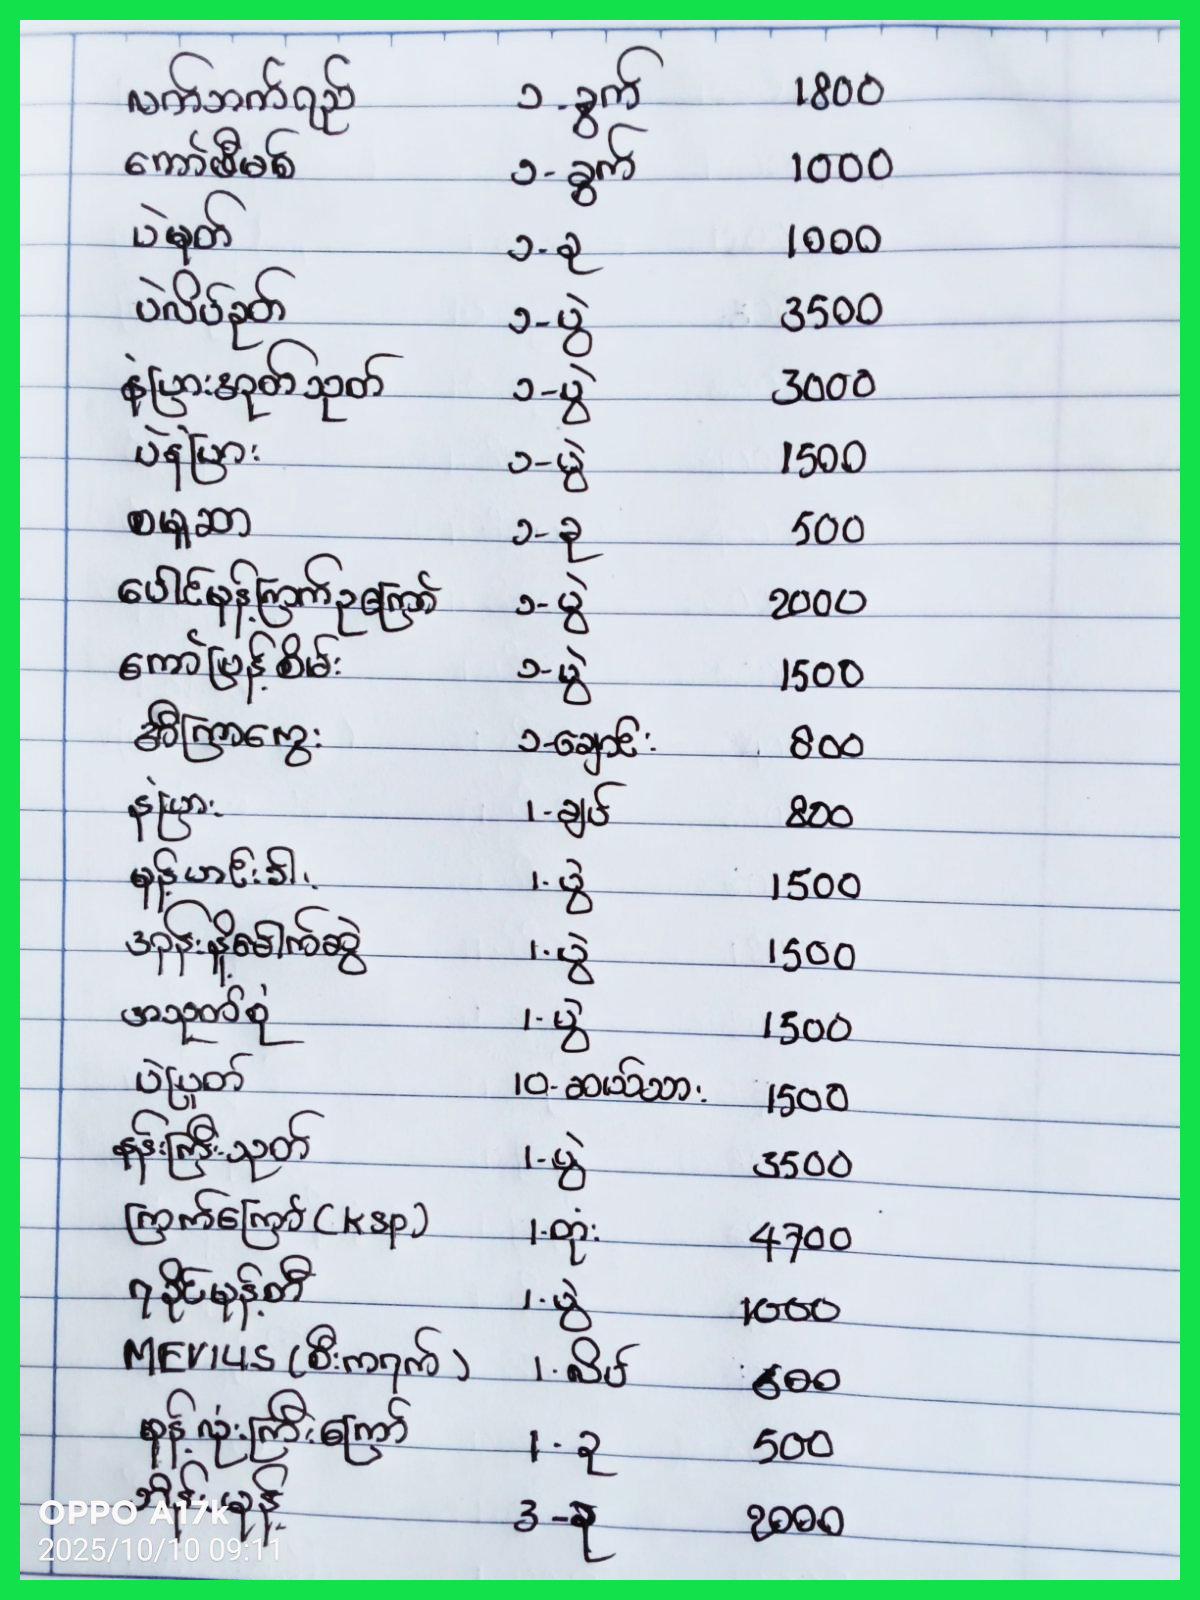 လက်ဘက်ရည် ၁-ခွက် 1800
ကော်ဖီမစ် ၁-ခွက် 1000
ပဲမုတ် ၁-ခု 1000
ပဲလိပ်ခုတ် ၁-ပွဲ 3500
နံပြားအုတ်သုတ် ၁-ပွဲ 3000
ပဲနံပြား ၁-ပွဲ 1500
စမူဆာ ၁-ခု 500
ပေါင်မုန့်ကြက်ဥကြော် ၁-ပွဲ 2000
ကော်ပြန့်စိမ်း ၁-ပွဲ 1500
အီကြာကွေး ၁-ချောင်း 800
နံပြား 1-ချပ် 800
မုန့်ဟင်းခါး 1-ပွဲ 1500
အုန်းနို့ခေါက်ဆွဲ 1-ပွဲ 1500
အသုတ်စုံ 1-ပွဲ 1500
ပဲပြုတ် 10-ဆယ်သား 1500
နန်းကြီးသုတ် 1-ပွဲ 3500
ကြက်ကြော် (KSP) 1-တုံး 4700
ရခိုင်မုန့်တီ 1-ပွဲ 1000
MEVIUS (စီးကရက်) 1-လိပ် 600
မုန့်လုံးကြီးကြော် 1-ခု 500
ဘိန်းမုန့် 3-ခု 2000
OPPO A17k
2025/10/10 09:11